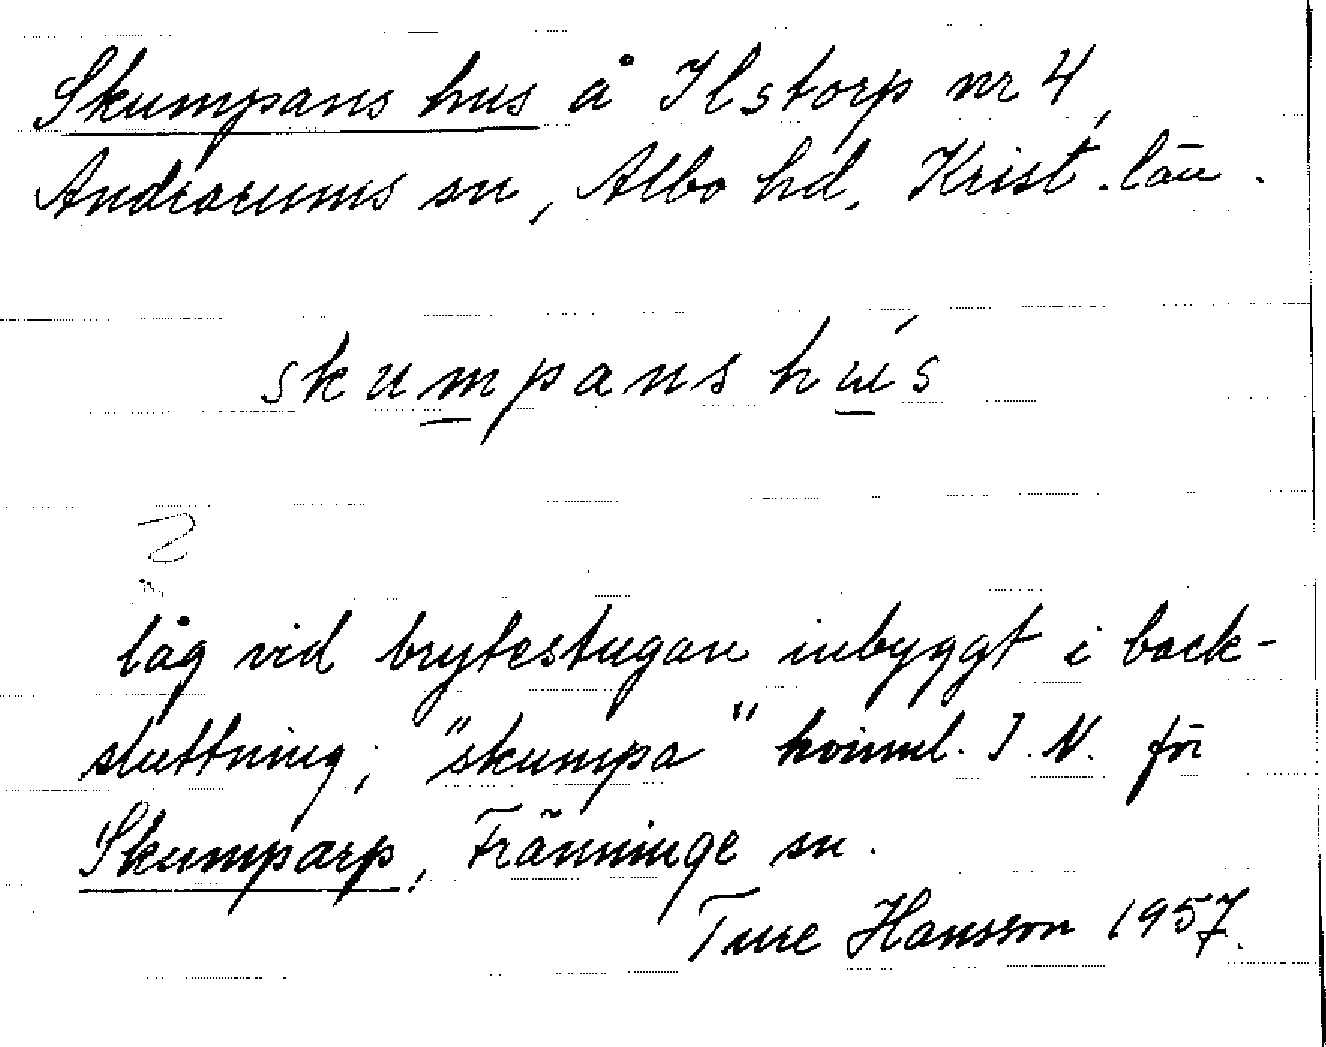 Skumpans hus å Ilstorp nr 4,
Andrarums sn, Albo hd. Krist. län.
skumpans hu̲s
låg vid brytestugan inbyggt i back-
sluttning; "skumpa" hörnml. I. N. för
Skumparp, Tranninge sn.
Ture Hansson 1957.